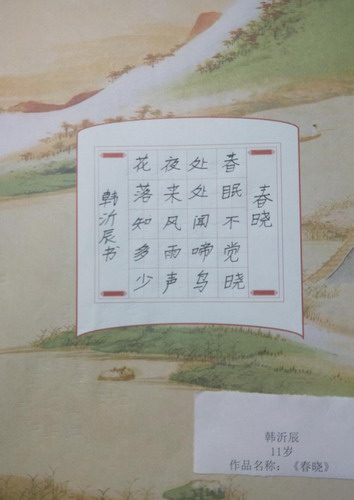 春晓
春眠不觉晓
处处闻啼鸟
夜来风雨声
花落知多少
韩沂辰书
韩沂辰
11岁
作品名称：《春晓》